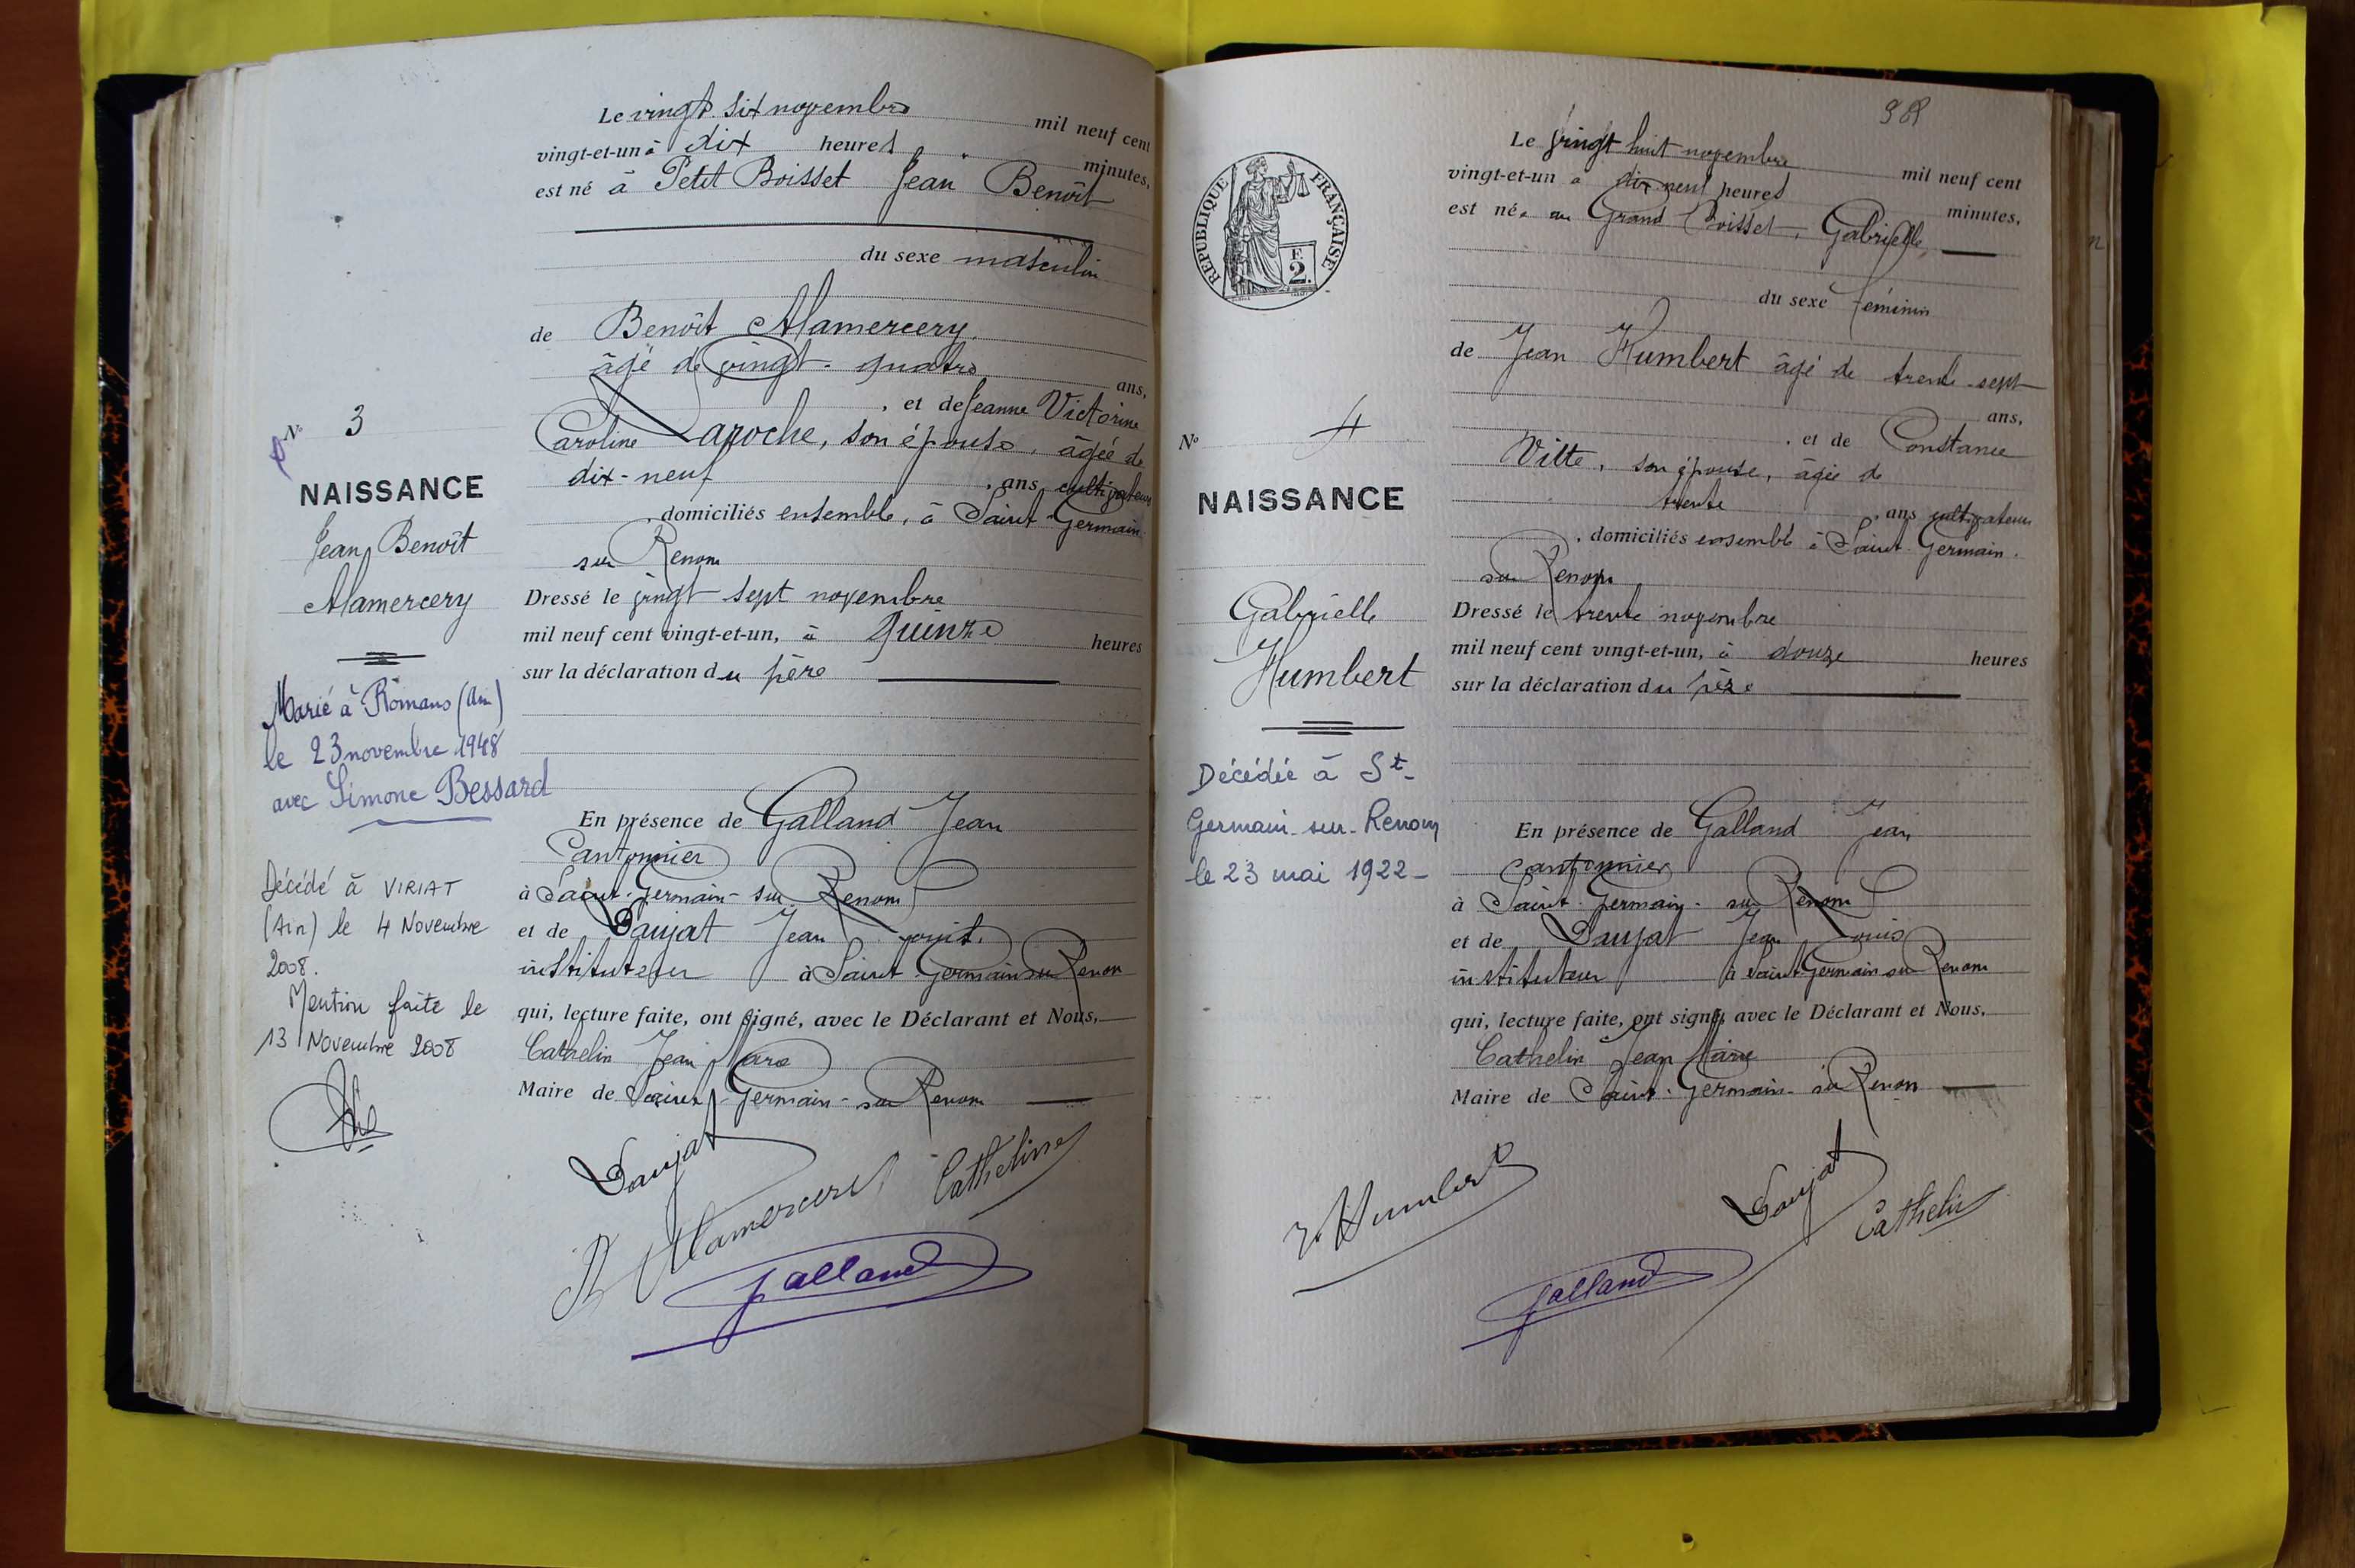 Le vingt six novembre mil neuf cent
vingt-et-un à dix heures " minutes,
est né à Petit Boisset Jean Benoît
du sexe masculin
de Benoît Alamercery
âgé de vingt-quatre ans,
, et de Jeanne Victorine
Caroline Laroche, son épouse, âgée de
dix-neuf , ans, cultivateurs
, domiciliés ensemble, à Saint-Germain
sur Renom
Dressé le vingt sept novembre
mil neuf cent vingt-et-un, à quinze heures
sur la déclaration du père
En présence de Galland Jean
Cantonnier
à Saint-Germain-sur Renom
et de Daujat Jean Louis,
instituteur à Saint Germain sur Renom
qui, lecture faite, ont signé, avec le Déclarant et Nous,
Cathelin Jean Marie
Maire de Saint-Germain-sur Renom
Daujat
Alamercery
Cathelin
Galland
N° 3
NAISSANCE
Jean Benoît
Alamercery
Marié à Romans (Ain)
le 23 novembre 1948
avec Simone Bessard
Décédé à VIRIAT
(Ain) le 4 Novembre
2008.
Mention faite le
13 Novembre 2008
RÉPUBLIQUE FRANÇAISE
F.
2.
Le vingt huit novembre mil neuf cent
vingt-et-un à dix-neuf heures minutes,
est née au Grand Boisset, Gabrielle,
du sexe féminin
de Jean Humbert âgé de trente-sept
ans,
, et de Constance
Vitte, son épouse, âgée de
trente , ans cultivateurs
, domiciliés ensemble à Saint-Germain-
sur Renom
Dressé le trente novembre
mil neuf cent vingt-et-un, à douze heures
sur la déclaration du père
En présence de Galland Jean
Cantonnier
à Saint-Germain-sur Renom
et de Daujat Jean Louis
instituteur à Saint Germain sur Renom
qui, lecture faite, ont signé, avec le Déclarant et Nous,
Cathelin Jean Marie
Maire de Saint-Germain-sur Renom
Humbert
Daujat
Cathelin
Galland
N° 4
NAISSANCE
Gabrielle
Humbert
Décédée à St-
Germain-sur-Renom
le 23 mai 1922-